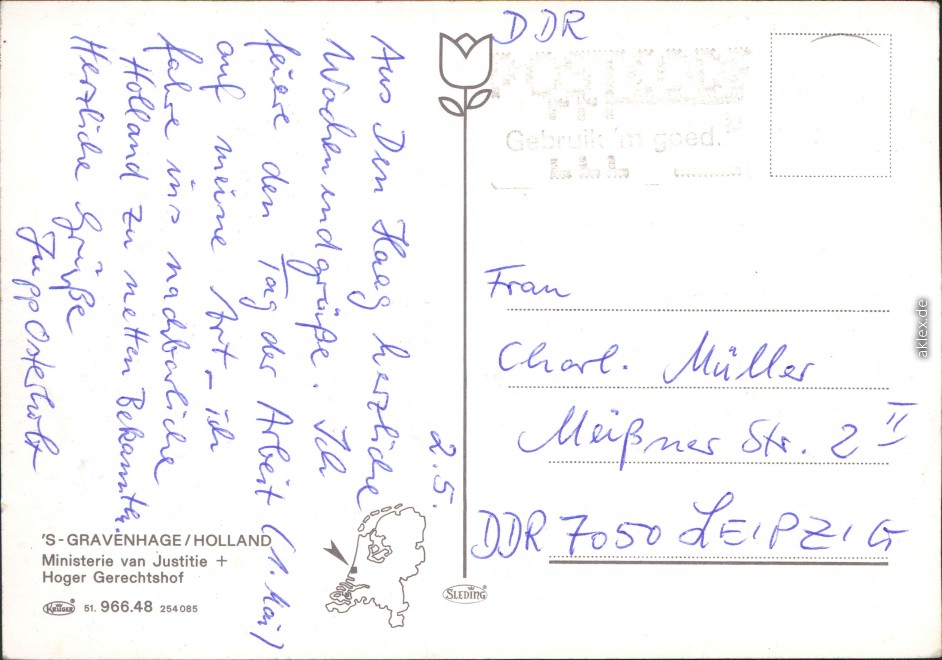 2.5.
Aus Den Haag herzliche
Wochenendgrüße. Ich
feiere den Tag der Arbeit (1. Mai)
auf meine Art – ich
fahre ins nachbarliche
Holland zu netten Bekannten.
Herzliche Grüße
Jupp Osterholt
'S-GRAVENHAGE/HOLLAND
Ministerie van Justitie +
Hoger Gerechtshof
KRÜGER 51. 966.48 254085
SLEDING
DDR
POSTCODE
Gebruik 'm goed.
Frau
Charl. Müller
Meißner Str. 2 II
DDR 7050 LEIPZIG
aklex.de